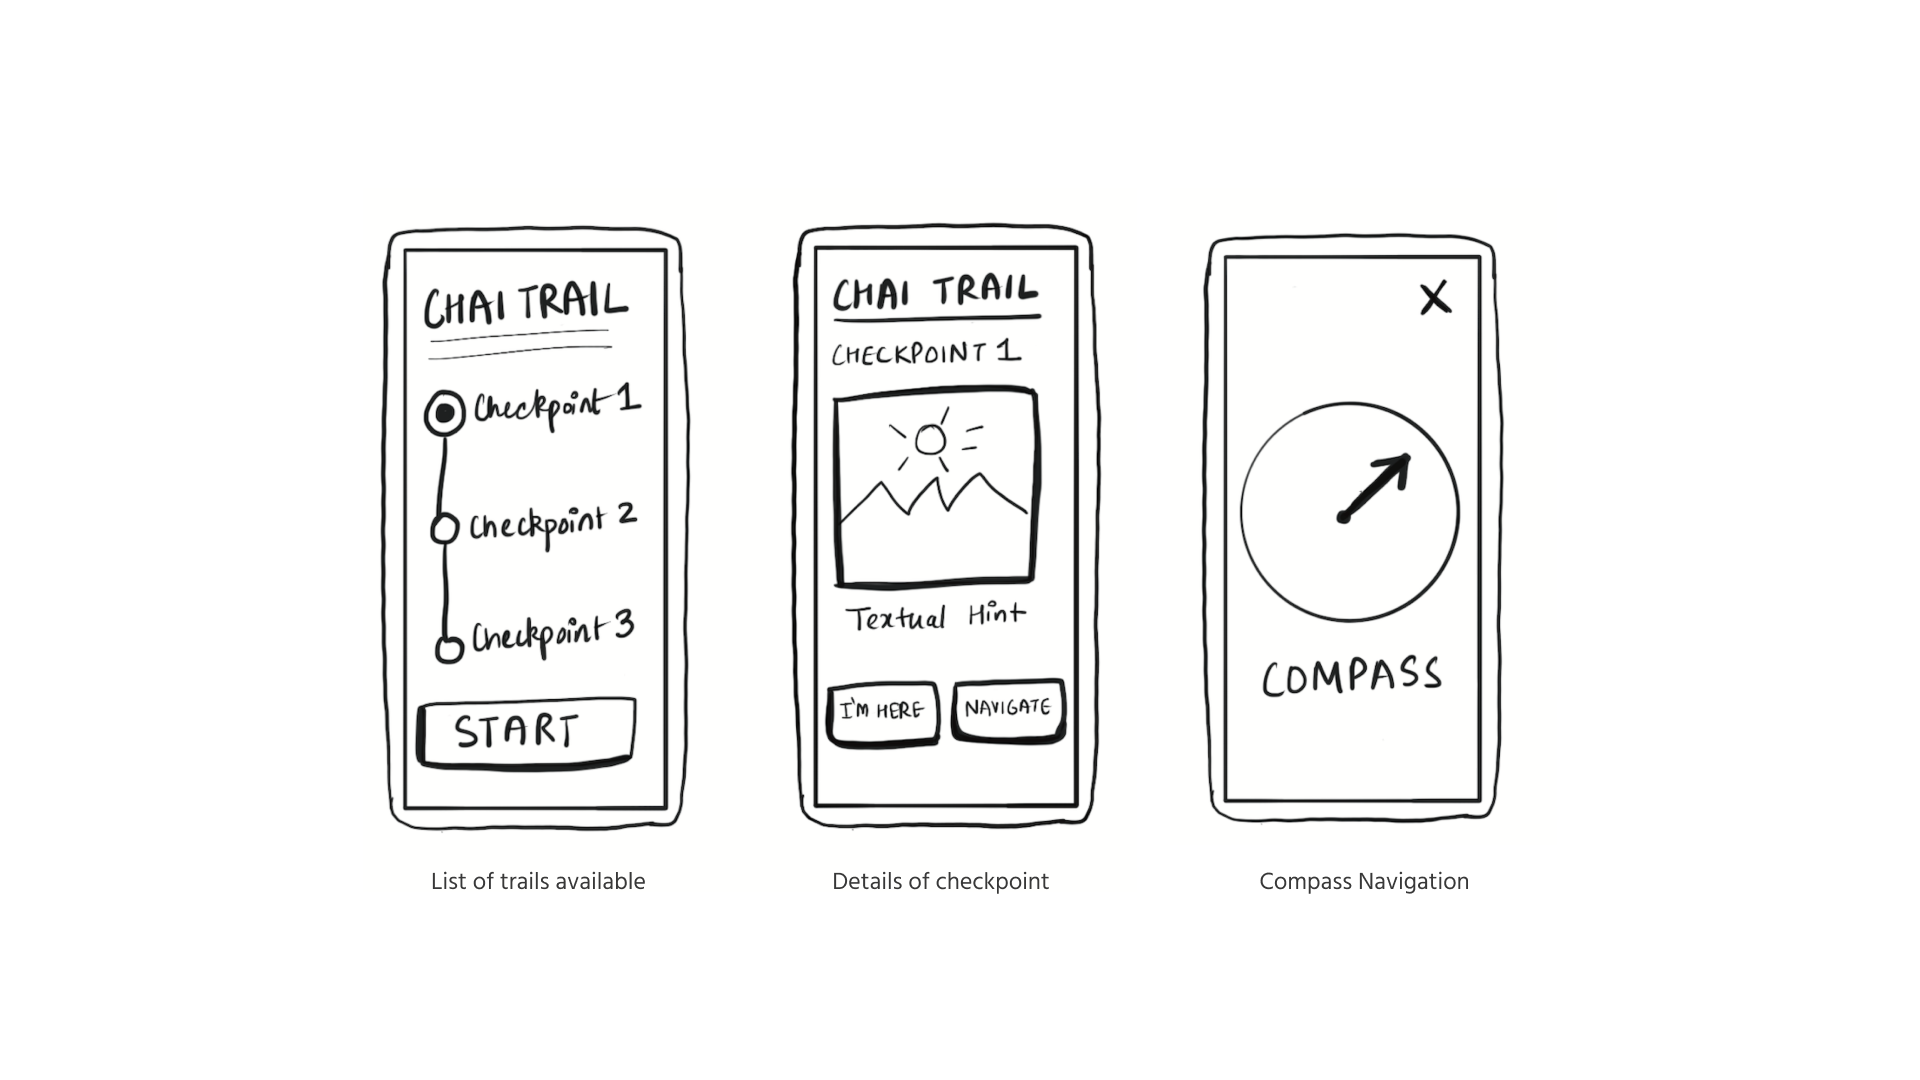 CHAI TRAIL
Checkpoint 1
Checkpoint 2
Checkpoint 3
START
List of trails available
CHAI TRAIL
CHECKPOINT 1
Textual Hint
I'M HERE
NAVIGATE
Details of checkpoint
X
COMPASS
Compass Navigation